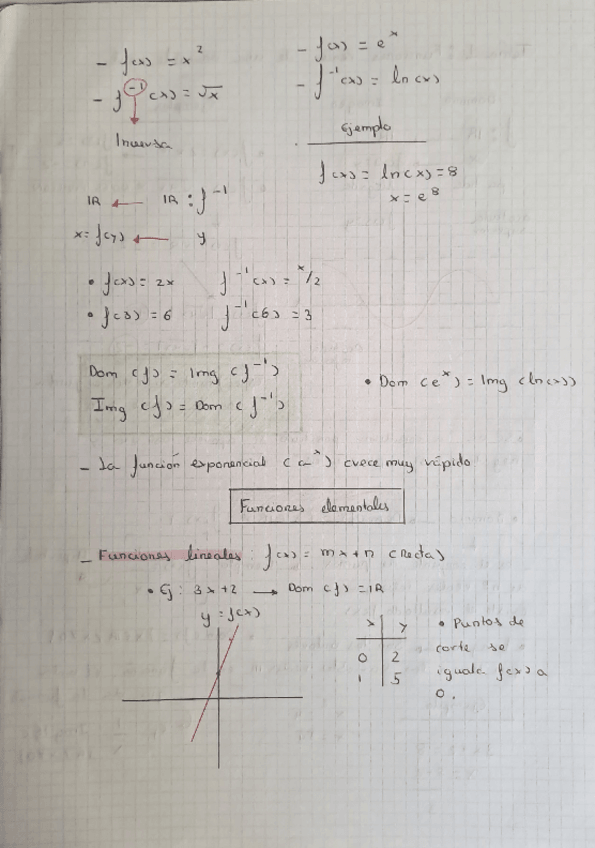 - f(x) = x²
- f⁻¹(x) = √x
Inversa
- f(x) = e^x
- f⁻¹(x) = ln(x)
Ejemplo
f(x) = ln(x) = 8
x = e⁸
IR ← IR : f⁻¹
x = f(y) ← y
• f(x) = 2x f⁻¹(x) = x/2
• f(3) = 6 f⁻¹(6) = 3
Dom (f) = Img (f⁻¹)
Img (f) = Dom (f⁻¹)
• Dom (e^x) = Img (ln(x))
- La función exponencial (a^x) crece muy rápido
Funciones elementales
- Funciones lineales: f(x) = mx + n (Rectas)
• Ej: 3x+2 → Dom (f) = IR
y = f(x)
x y
0 2
1 5
• Puntos de
corte se
iguala f(x) a
0.